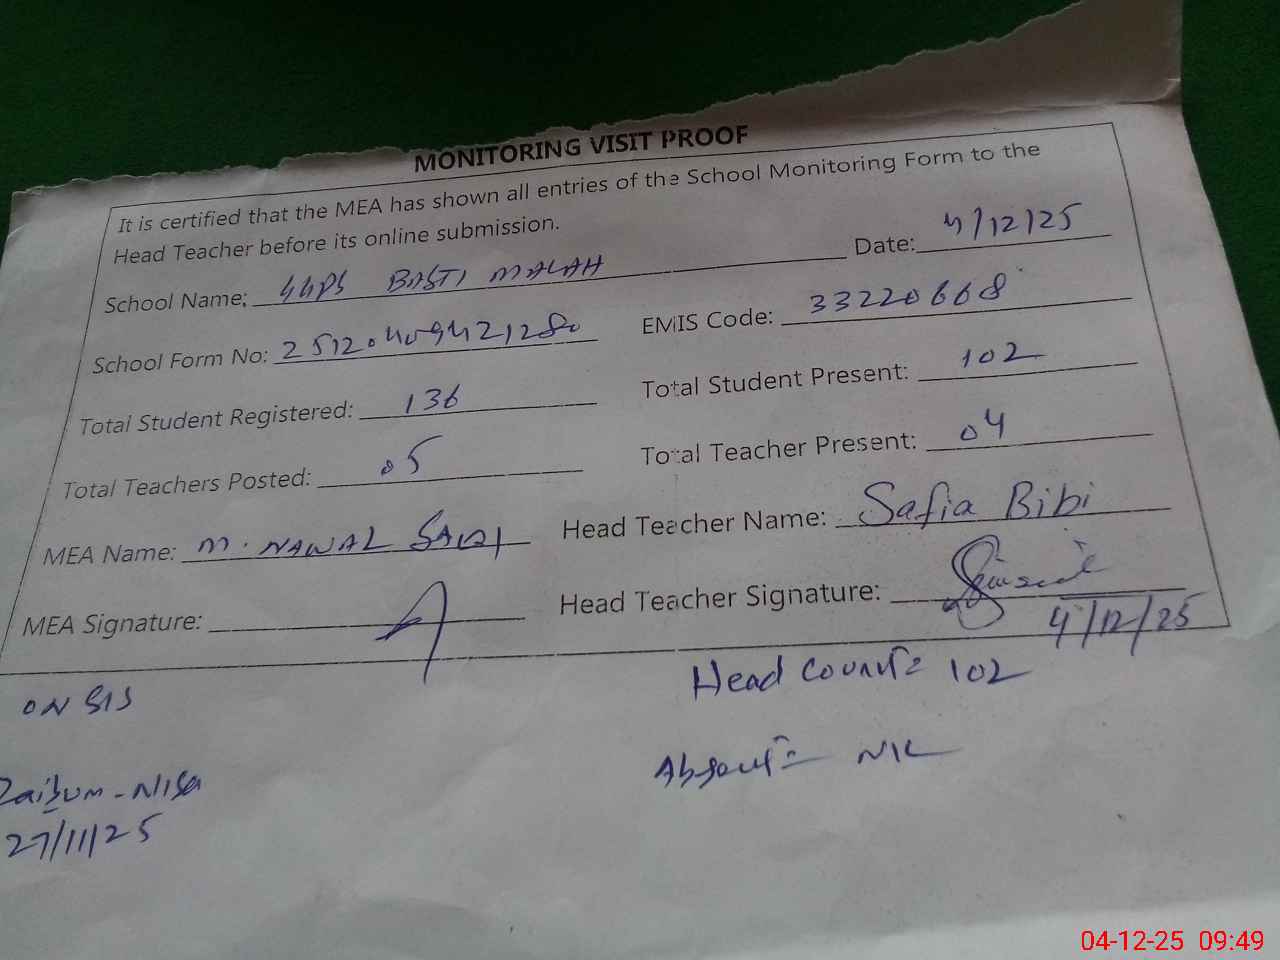 MONITORING VISIT PROOF
It is certified that the MEA has shown all entries of the School Monitoring Form to the
Head Teacher before its online submission.
School Name: GGPS BASTI MALAH Date: 4/12/25
School Form No: EMIS Code: 33220668
Total Student Registered: 136 Total Student Present: 102
Total Teachers Posted: 05 Total Teacher Present: 04
MEA Name: M. NAWAZ Head Teacher Name: Safia Bibi
MEA Signature: Head Teacher Signature:
4/12/25
ON SIS Head Count = 102
Absent = NIL
Zaibum-Nisa
27/11/25
04-12-25 09:49